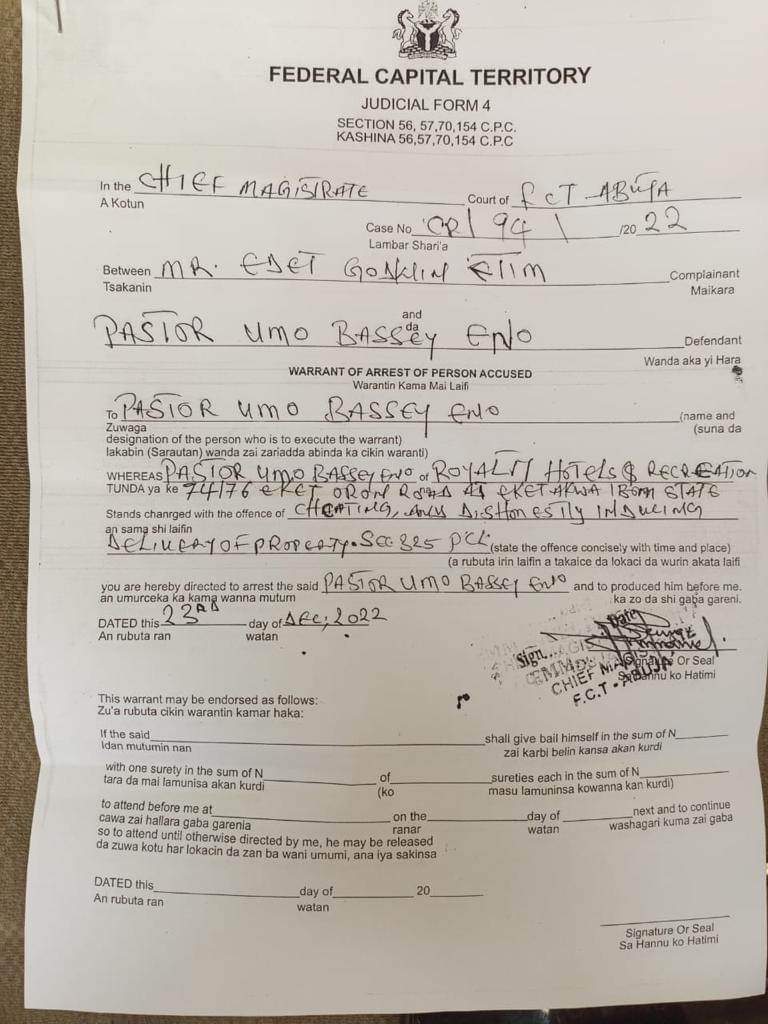 FEDERAL CAPITAL TERRITORY
JUDICIAL FORM 4
SECTION 56, 57,70,154 C.P.C.
KASHINA 56,57,70,154 C.P.C
In the CHIEF MAGISTRATE Court of FCT ABUJA
A Kotun
Case No CR/ 94 / /20 22
Lambar Shari'a
Between MR. EDET GODWIN ETIM Complainant
Tsakanin Maikara
and
da
PASTOR UMO BASSEY ENO Defendant
Wanda aka yi Hara
WARRANT OF ARREST OF PERSON ACCUSED
Warantin Kama Mai Laifi
To PASTOR UMO BASSEY ENO (name and
Zuwaga (suna da
designation of the person who is to execute the warrant)
lakabin (Sarautan) wanda zai zariadda abinda ka cikin waranti)
WHEREAS PASTOR UMO BASSEY ENO of ROYALTY HOTELS & RECREATION
TUNDA ya ke 74/76 EKET ORON ROAD EKET AKWA IBOM STATE
Stands chanrged with the offence of CHEATING, AND DISHONESTLY INDUCING
an sama shi laifin
DELIVERY OF PROPERTY. SEC 325 PCL (state the offence concisely with time and place)
(a rubuta irin laifin a takaice da lokaci da wurin akata laifi
you are hereby directed to arrest the said PASTOR UMO BASSEY ENO and to produced him before me.
an umurceka ka kama wanna mutum ka zo da shi gaba gareni.
DATED this 23RD day of DEC, 2022
An rubuta ran watan
Date
Sign
CHIEF MAGIS
F.C.T - ABUJA
Signature Or Seal
Sa Hannu ko Hatimi
This warrant may be endorsed as follows:
Zu'a rubuta cikin warantin kamar haka:
If the said shall give bail himself in the sum of N
Idan mutumin nan zai karbi belin kansa akan kurdi
with one surety in the sum of N of sureties each in the sum of N
tara da mai lamunisa akan kurdi (ko masu lamuninsa kowanna kan kurdi)
to attend before me at on the day of next and to continue
cawa zai hallara gaba garenia ranar watan washagari kuma zai gaba
so to attend until otherwise directed by me, he may be released
da zuwa kotu har lokacin da zan ba wani umumi, ana iya sakinsa
DATED this day of 20
An rubuta ran watan
Signature Or Seal
Sa Hannu ko Hatimi